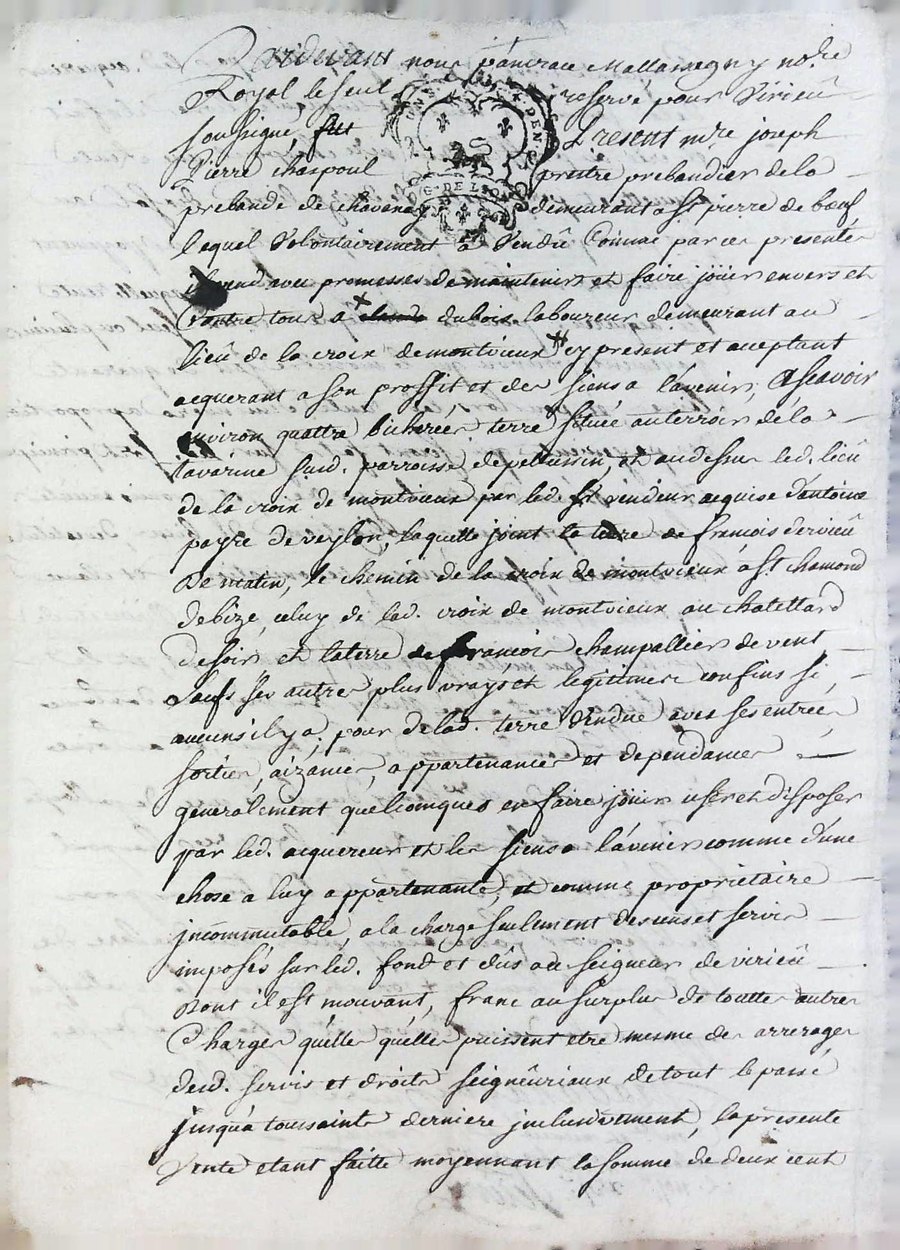 Pardevant nous pancrace Mallassagny no.re
Royal le seul reservé pour Virieû
soussigné, fut Present m.re joseph
Pierre chaspoul prestre prebandier de la
prebande de chavanay demeurant a St pierre de bœuf
lequel Volontairement a Vendû Comme par ces presentes
il vend avec promesses de maintenir et faire joüir envers et
Contre tous a dubois laboureur demeurant au
lieû de la croix de montvieux cy present et acceptant
acquerant a son proffit et des siens a l'avenir, Ascavoir
environ quattre bicherées terre située au terroir de la
lavarine susd. parroisse de pellussin, et audessus led. lieû
de la croix de montvieux par led. Sr vendeur acquise d'antoine
payre de veylon, laquelle joint la terre de françois dervieû
de matin, le chemin de la croix de montvieux a St chamond
de bize, celuy de lad. croix de montvieux au chatellard
de soir et la terre de francois champallier de vent
Saufs ses autres plus vrays et legitimes confins si
aucuns il y a, pour de lad. terre vendue avec ses entrées
sorties, aizances, appartenances et dependances
generalement quelconques en faire joüir user et disposer
par led. acquereur et les siens a l'avenir comme d'une
chose a luy appartenante, et comme proprietaire
jncommutable, a la charge seulement des cens et servis
imposés sur led. fond et dûs au seigneur de virieû
dont il est mouvant, franc au surplus de touttes autres
Charges quelles quelles puissent etre mesme des arrerages
desd. servis et droits seigneüriaux de tout le passé
jusqu'a toussaint derniere jnclusivement, la presente
Vente etant faitte moyennant la somme de deux cent